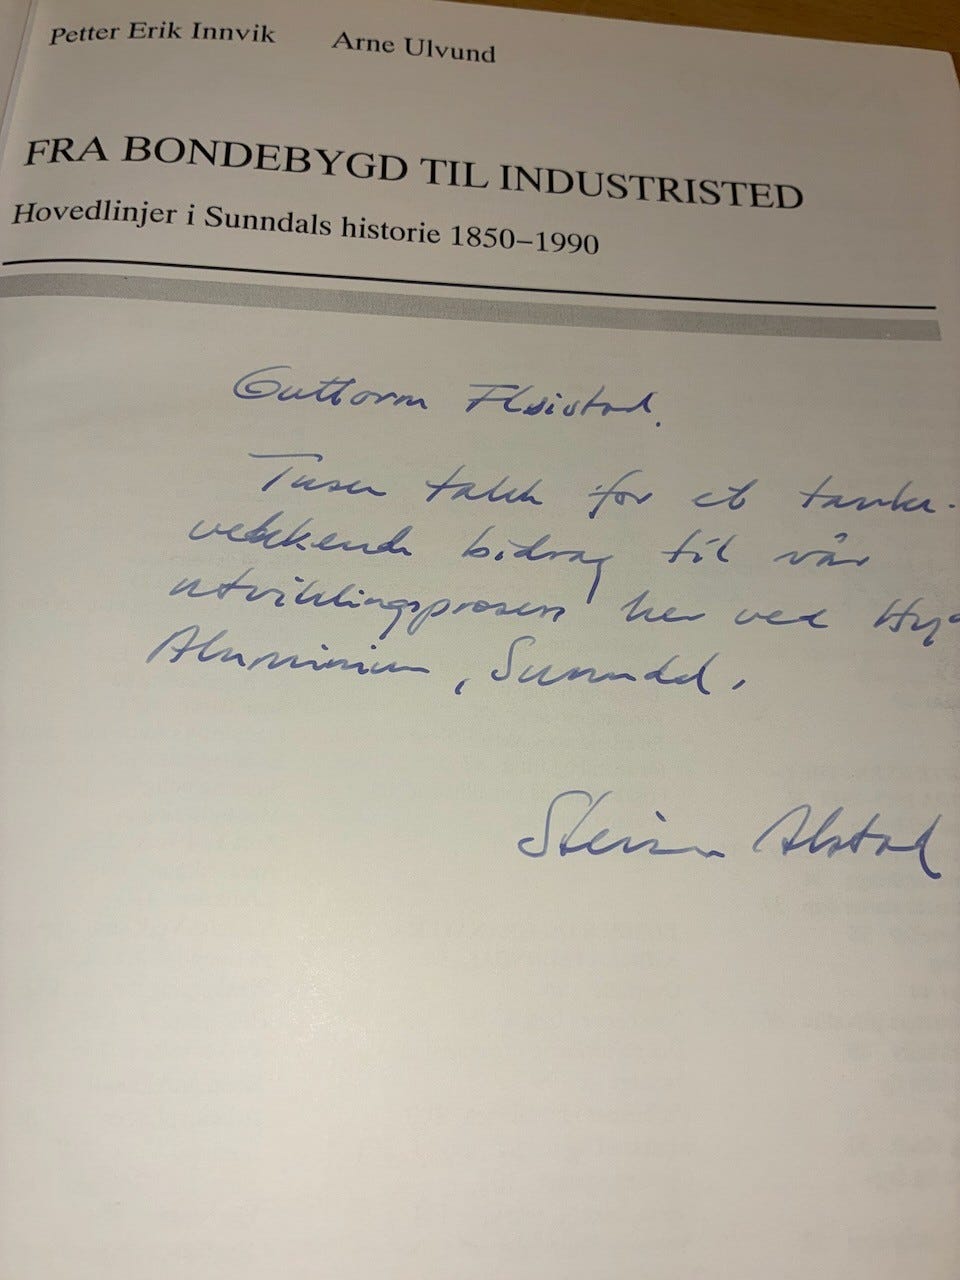 Petter Erik Innvik Arne Ulvund
FRA BONDEBYGD TIL INDUSTRISTED
Hovedlinjer i Sunndals historie 1850–1990
Guttorm Fløistad.
Tusen takk for et tanke-
vekkende bidrag til vår
utviklingsprosess her ved
Aluminium, Sunndal.
Steinar Alstad